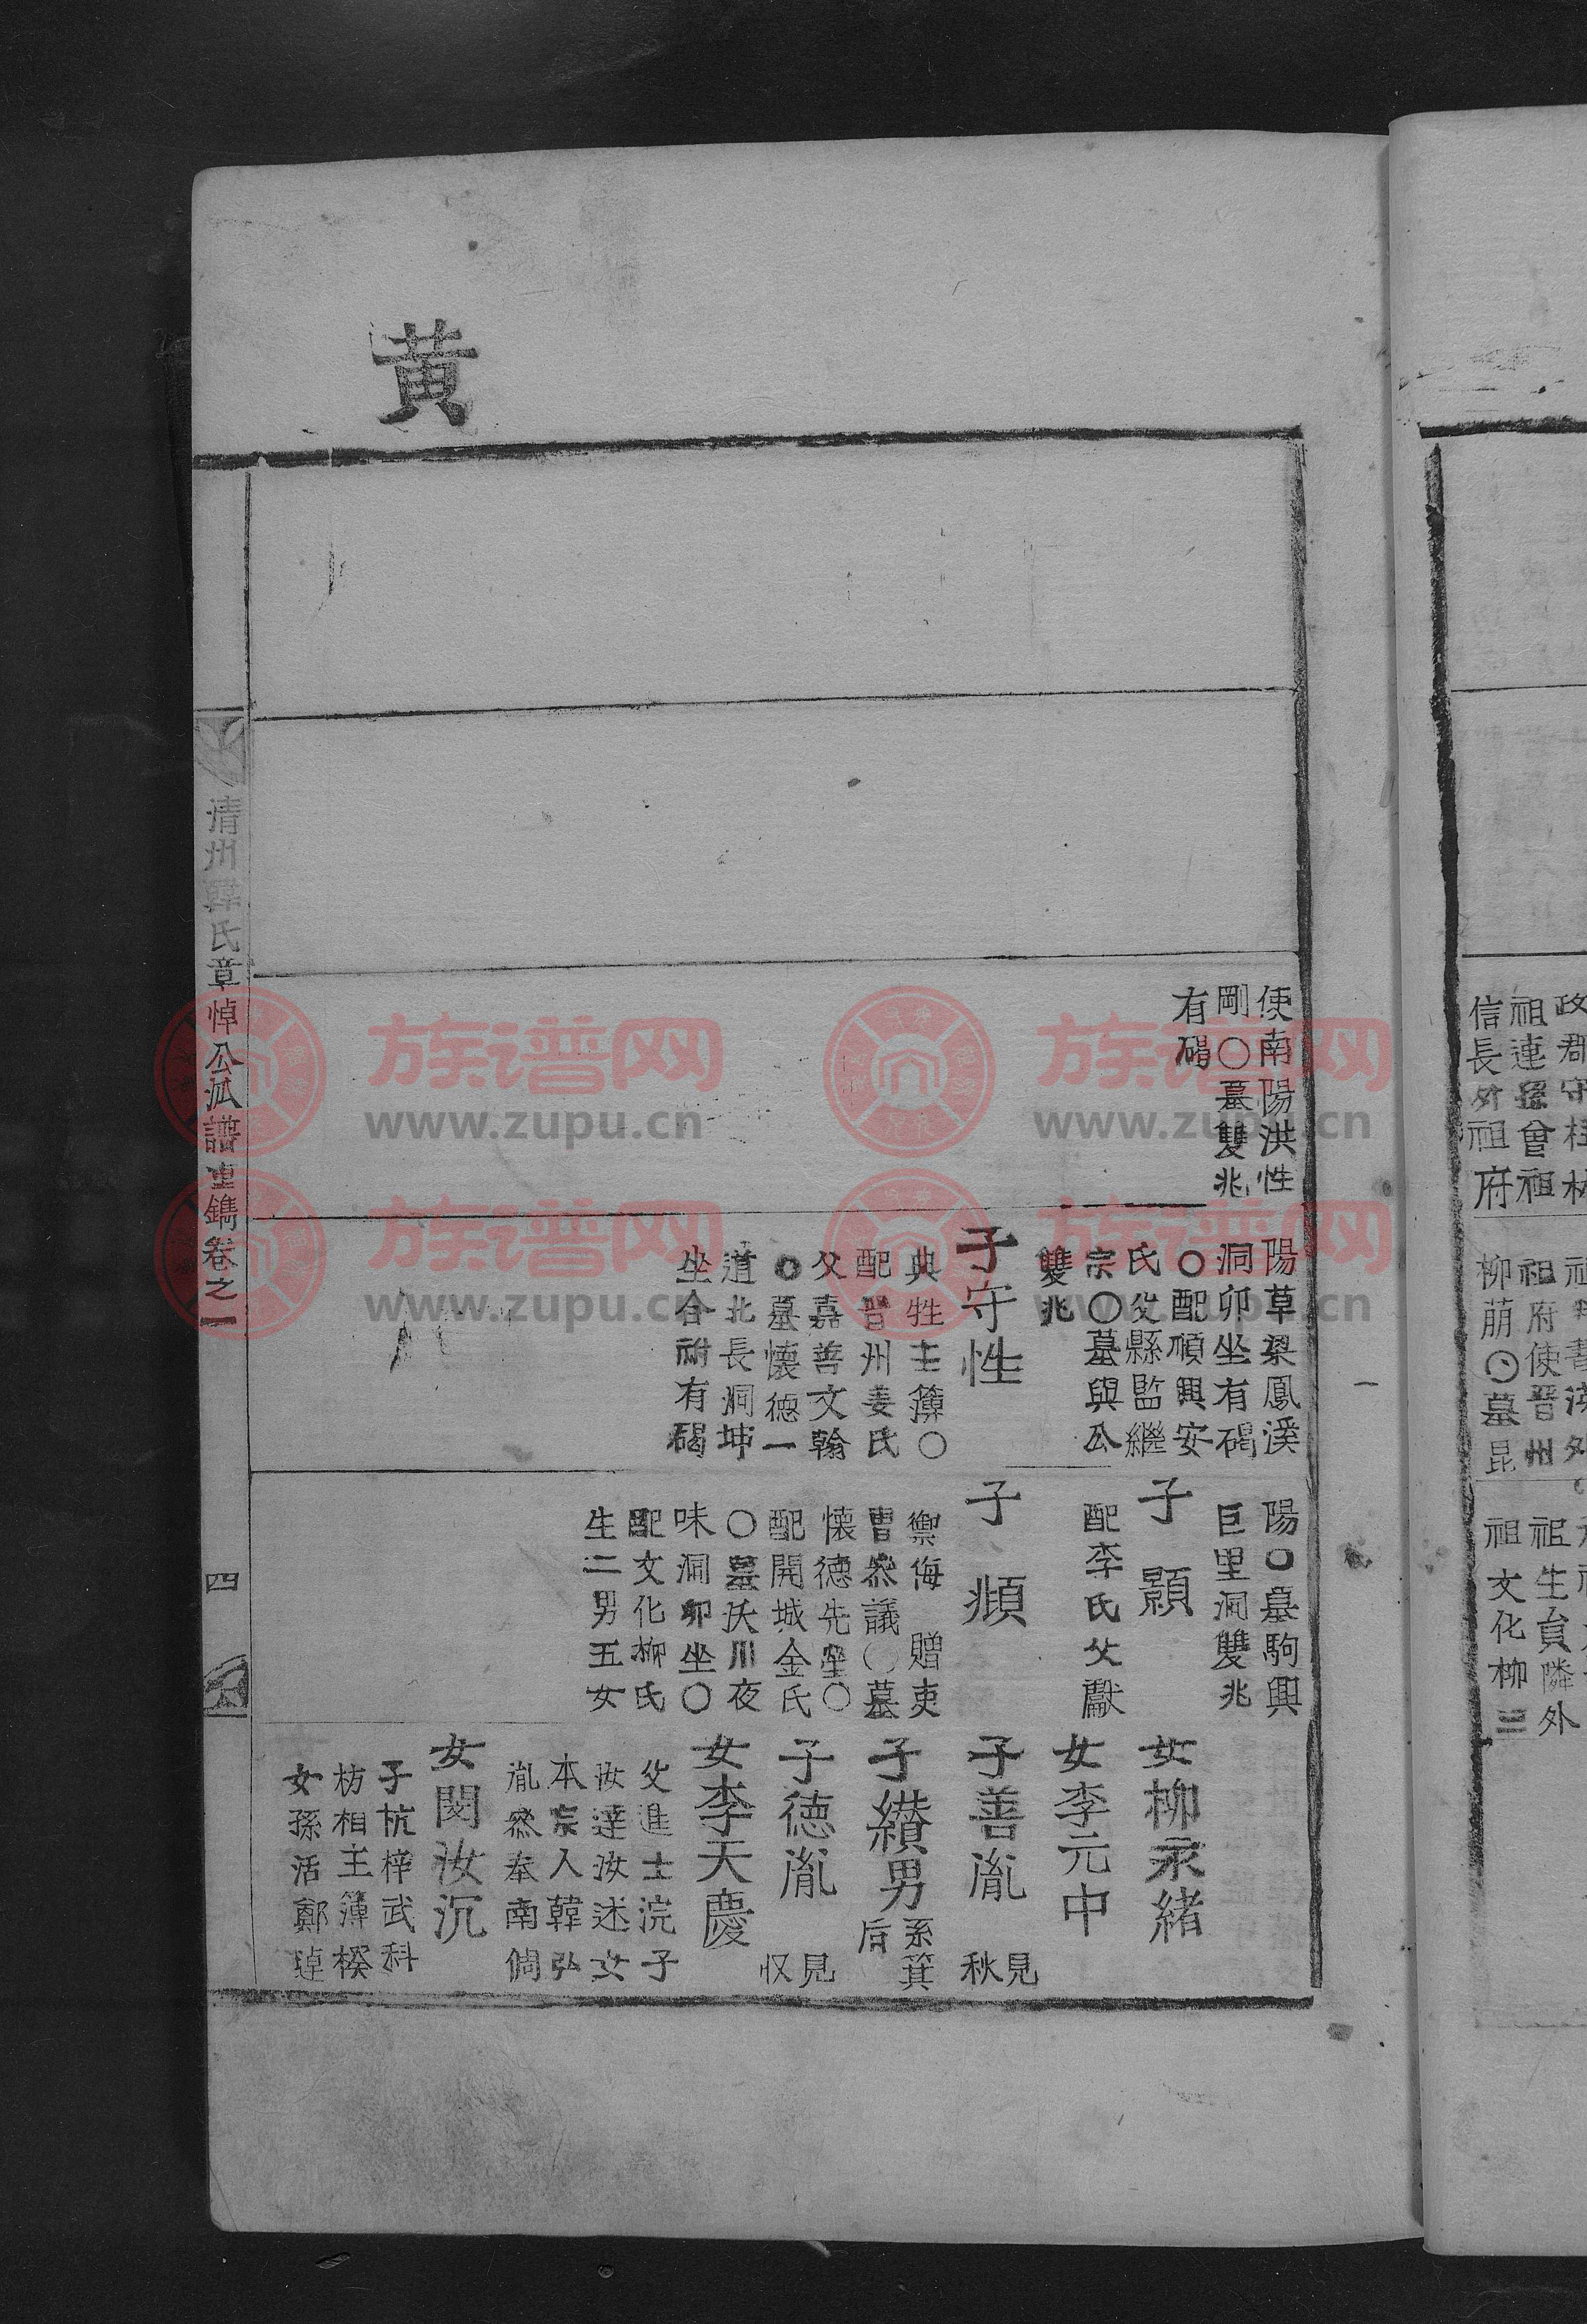 黄
使南陽洪性
剛〇墓雙兆
有碣
陽草梁鳳溪
洞卯坐有碣
〇配順興安
氏父縣監繼
宗〇墓與公
雙兆
子守性
典牲主簿〇
配晋州姜氏
父嘉善文翰
〇墓懐德一
道北長洞坤
坐合祔有碣
陽〇墓駒興
巨里洞雙兆
子顥
配李氏父獻
子頫
禦侮 贈吏
曺叅議〇墓
懐德先塋〇
配開城金氏
〇墓沃川夜
味洞卯坐〇
配文化柳氏
生二男五女
女柳永緒
女李元中
子善胤 見秋
子纉男 系箕后
子德胤 見収
女李天慶
父進士浣子
汝達汝述女
本宗人韓弘
胤叅奉南倜
女閔汝沉
子杭梓武科
枋相主簿楑
女孫活鄭𤧞
清州韓氏章悼公派譜重鐫卷之一
四
政郡守桂林
祖連孫曾祖
信長外祖府
祖府使晋州
柳萠〇墓昆
祖生員隣外
祖文化柳三
族谱网
www.zupu.cn
族谱网
www.zupu.cn
族谱网
www.zupu.cn
族谱网
www.zupu.cn